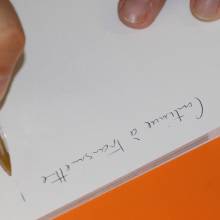 Continue à transmettre